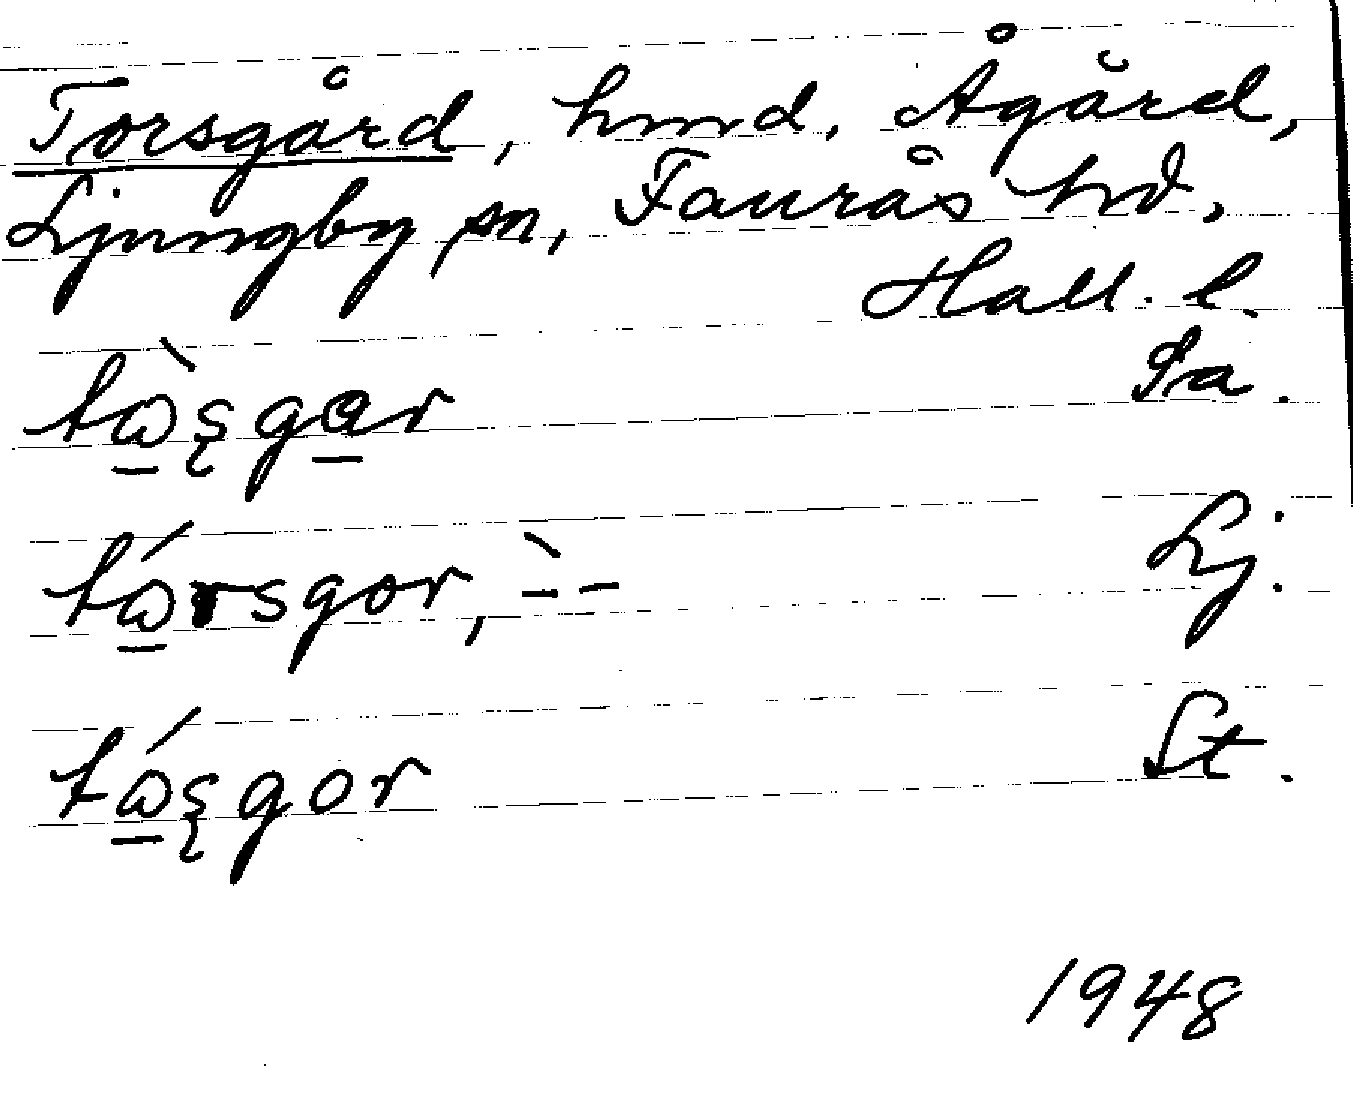 Torsgård, hmd. Ågård,
Ljungby sn, Faurås hd,
Hall. l.
tὼ̲s̢ga̲r Sa.
tώ̲rsgor, -̀- Lj.
tώ̲s̢gor St.
1948